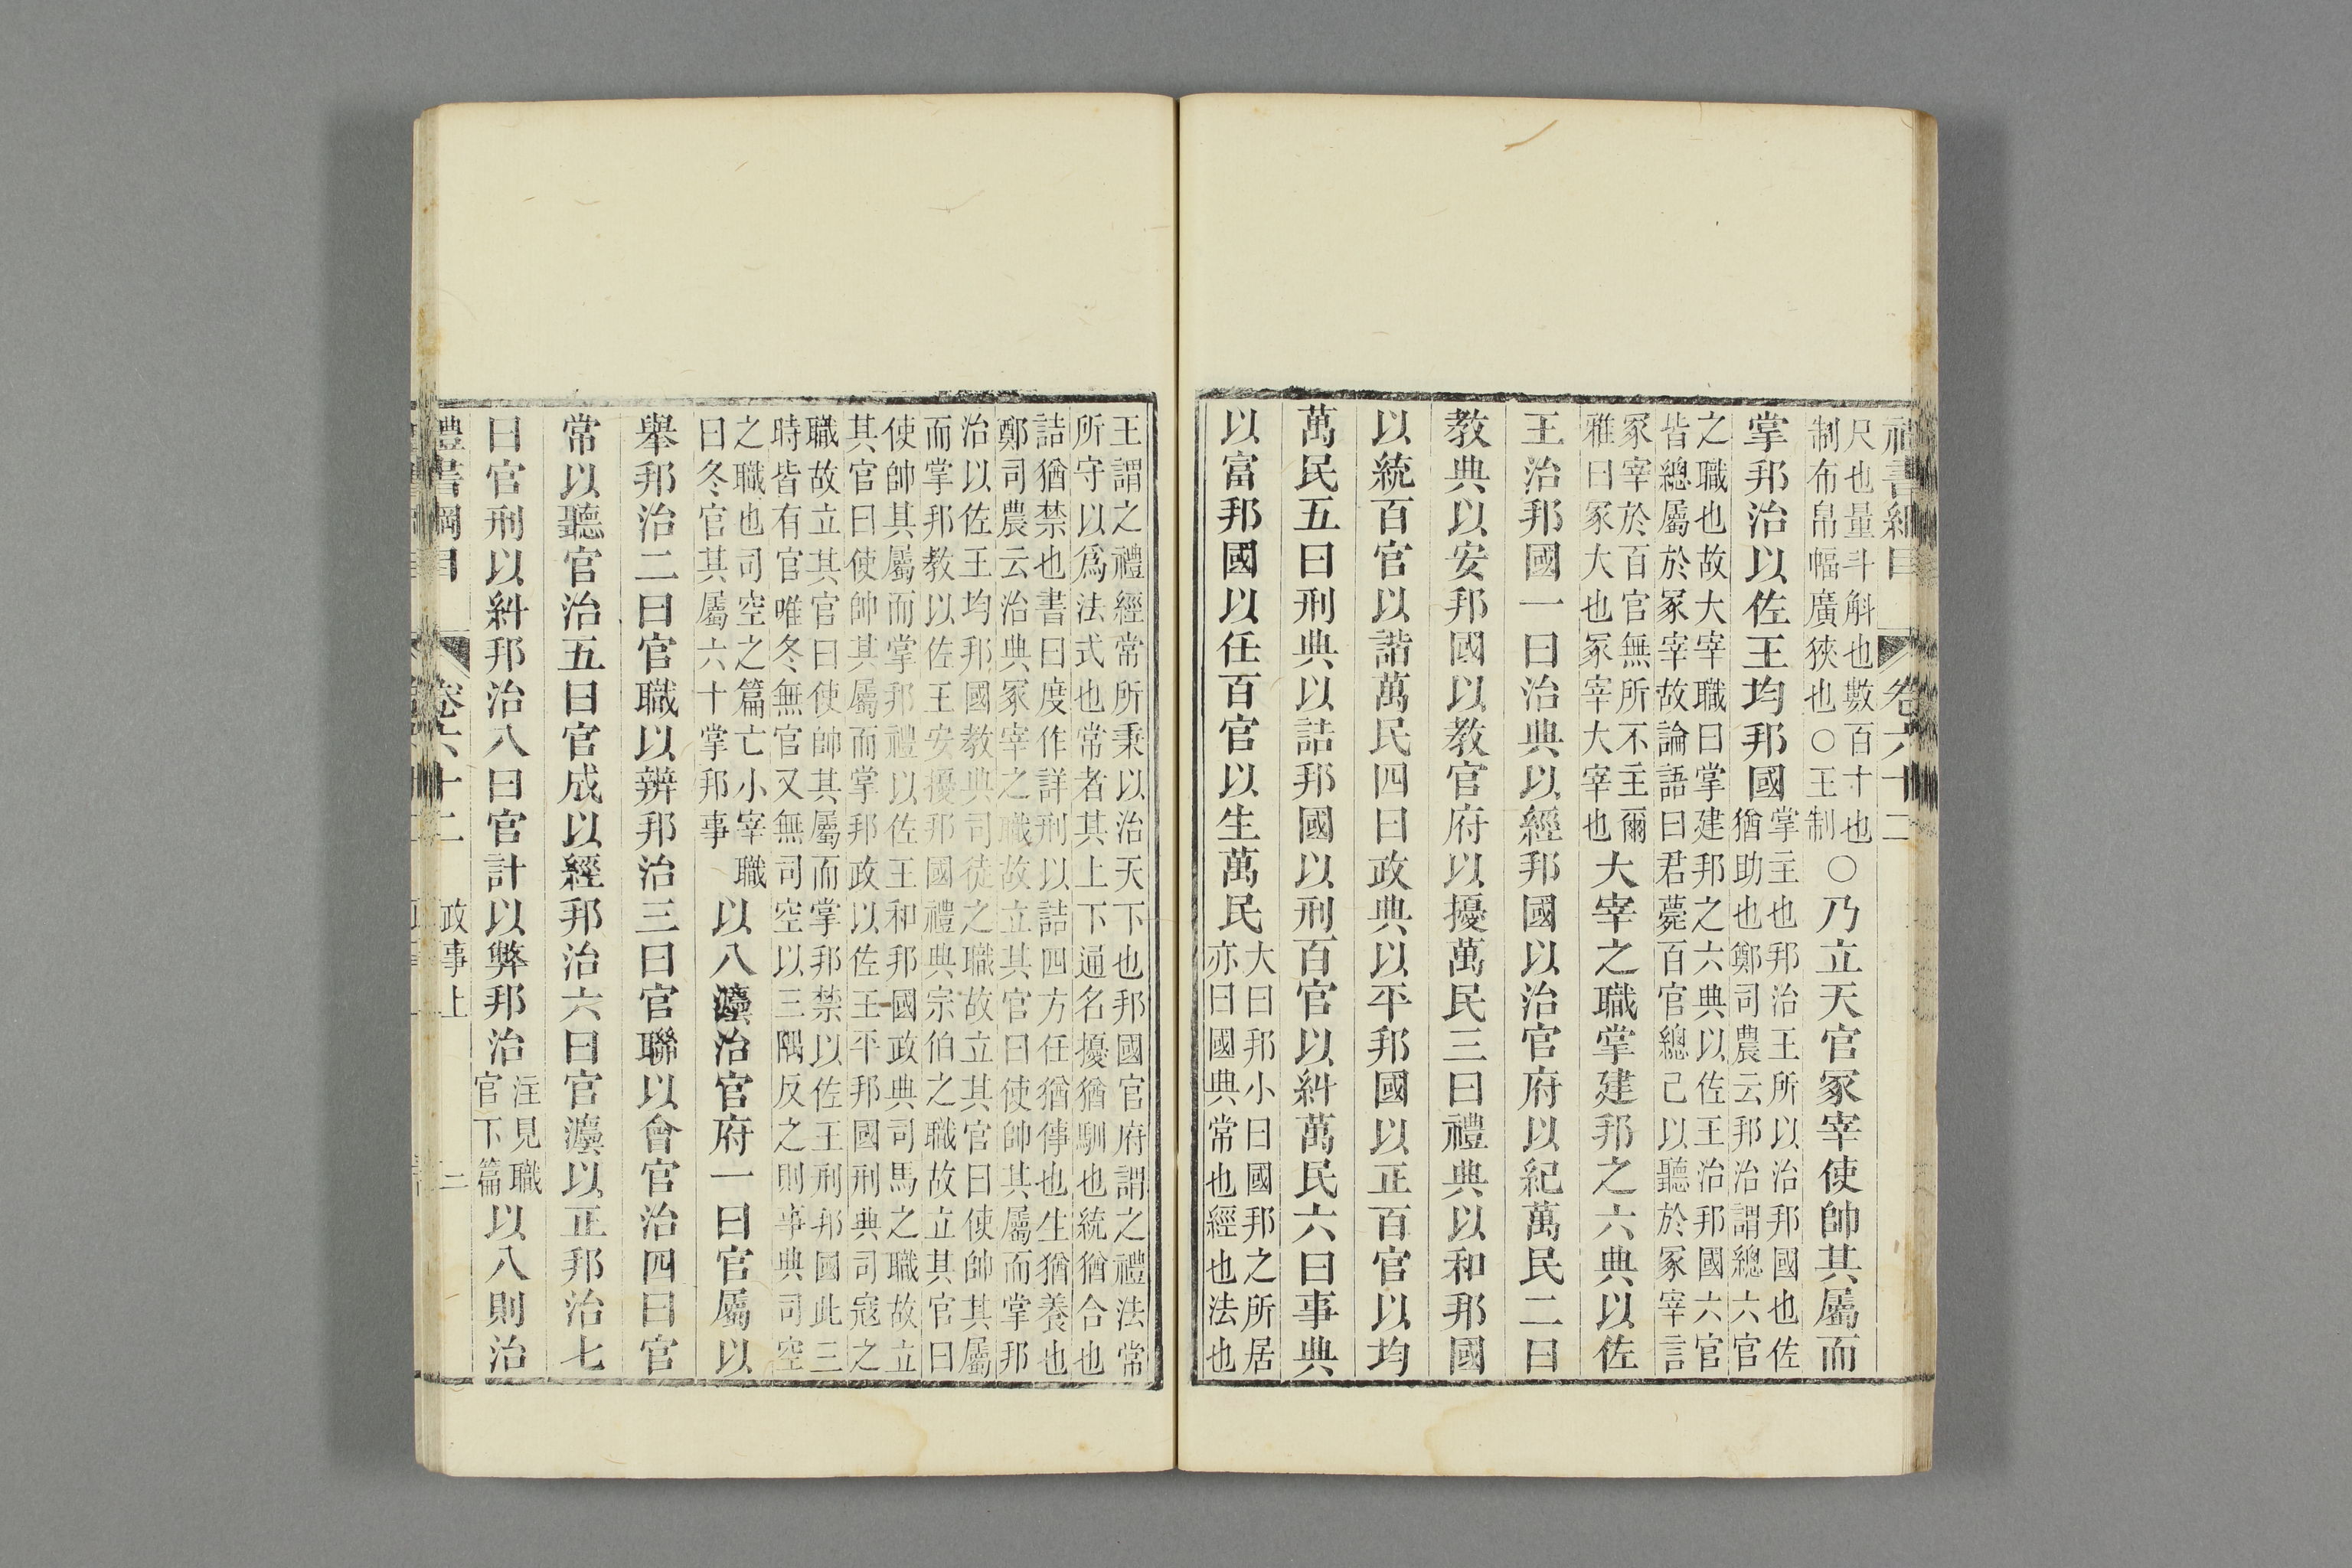 禮書綱目　卷六十二
尺也量斗斛也數百十也
制布帛幅廣狹也○王制
○乃立天官冢宰使帥其屬而
掌邦治以佐王均邦國
掌主也邦治王所以治邦國也佐
猶助也鄭司農云邦治謂總六官
之職也故大宰職曰掌建邦之六典以佐王治邦國六官
皆總屬於冢宰故論語曰君薨百官總己以聽於冢宰言
冢宰於百官無所不主爾
雅曰冢大也冢宰大宰也
大宰之職掌建邦之六典以佐
王治邦國一曰治典以經邦國以治官府以紀萬民二曰
教典以安邦國以教官府以擾萬民三曰禮典以和邦國
以統百官以諧萬民四曰政典以平邦國以正百官以均
萬民五曰刑典以詰邦國以刑百官以糾萬民六曰事典
以富邦國以任百官以生萬民
大曰邦小曰國邦之所居
亦曰國典常也經也法也
王謂之禮經常所秉以治天下也邦國官府謂之禮法常
所守以爲法式也常者其上下通名擾猶馴也統猶合也
詰猶禁也書曰度作詳刑以詰四方任猶傳也生猶養也
鄭司農云治典冢宰之職故立其官曰使帥其屬而掌邦
治以佐王均邦國教典司徒之職故立其官曰使帥其屬
而掌邦教以佐王安擾邦國禮典宗伯之職故立其官曰
使帥其屬而掌邦禮以佐王和邦國政典司馬之職故立
其官曰使帥其屬而掌邦政以佐王平邦國刑典司寇之
職故立其官曰使帥其屬而掌邦禁以佐王刑邦國此三
時皆有官唯冬無官又無司空以三隅反之則事典司空
之職也司空之篇亡小宰職
曰冬官其屬六十掌邦事
以八灋治官府一曰官屬以
舉邦治二曰官職以辨邦治三曰官聯以會官治四曰官
常以聽官治五曰官成以經邦治六曰官灋以正邦治七
曰官刑以糾邦治八曰官計以弊邦治
注見職
官下篇
以八則治
禮書綱目　卷六十二　政事上　二